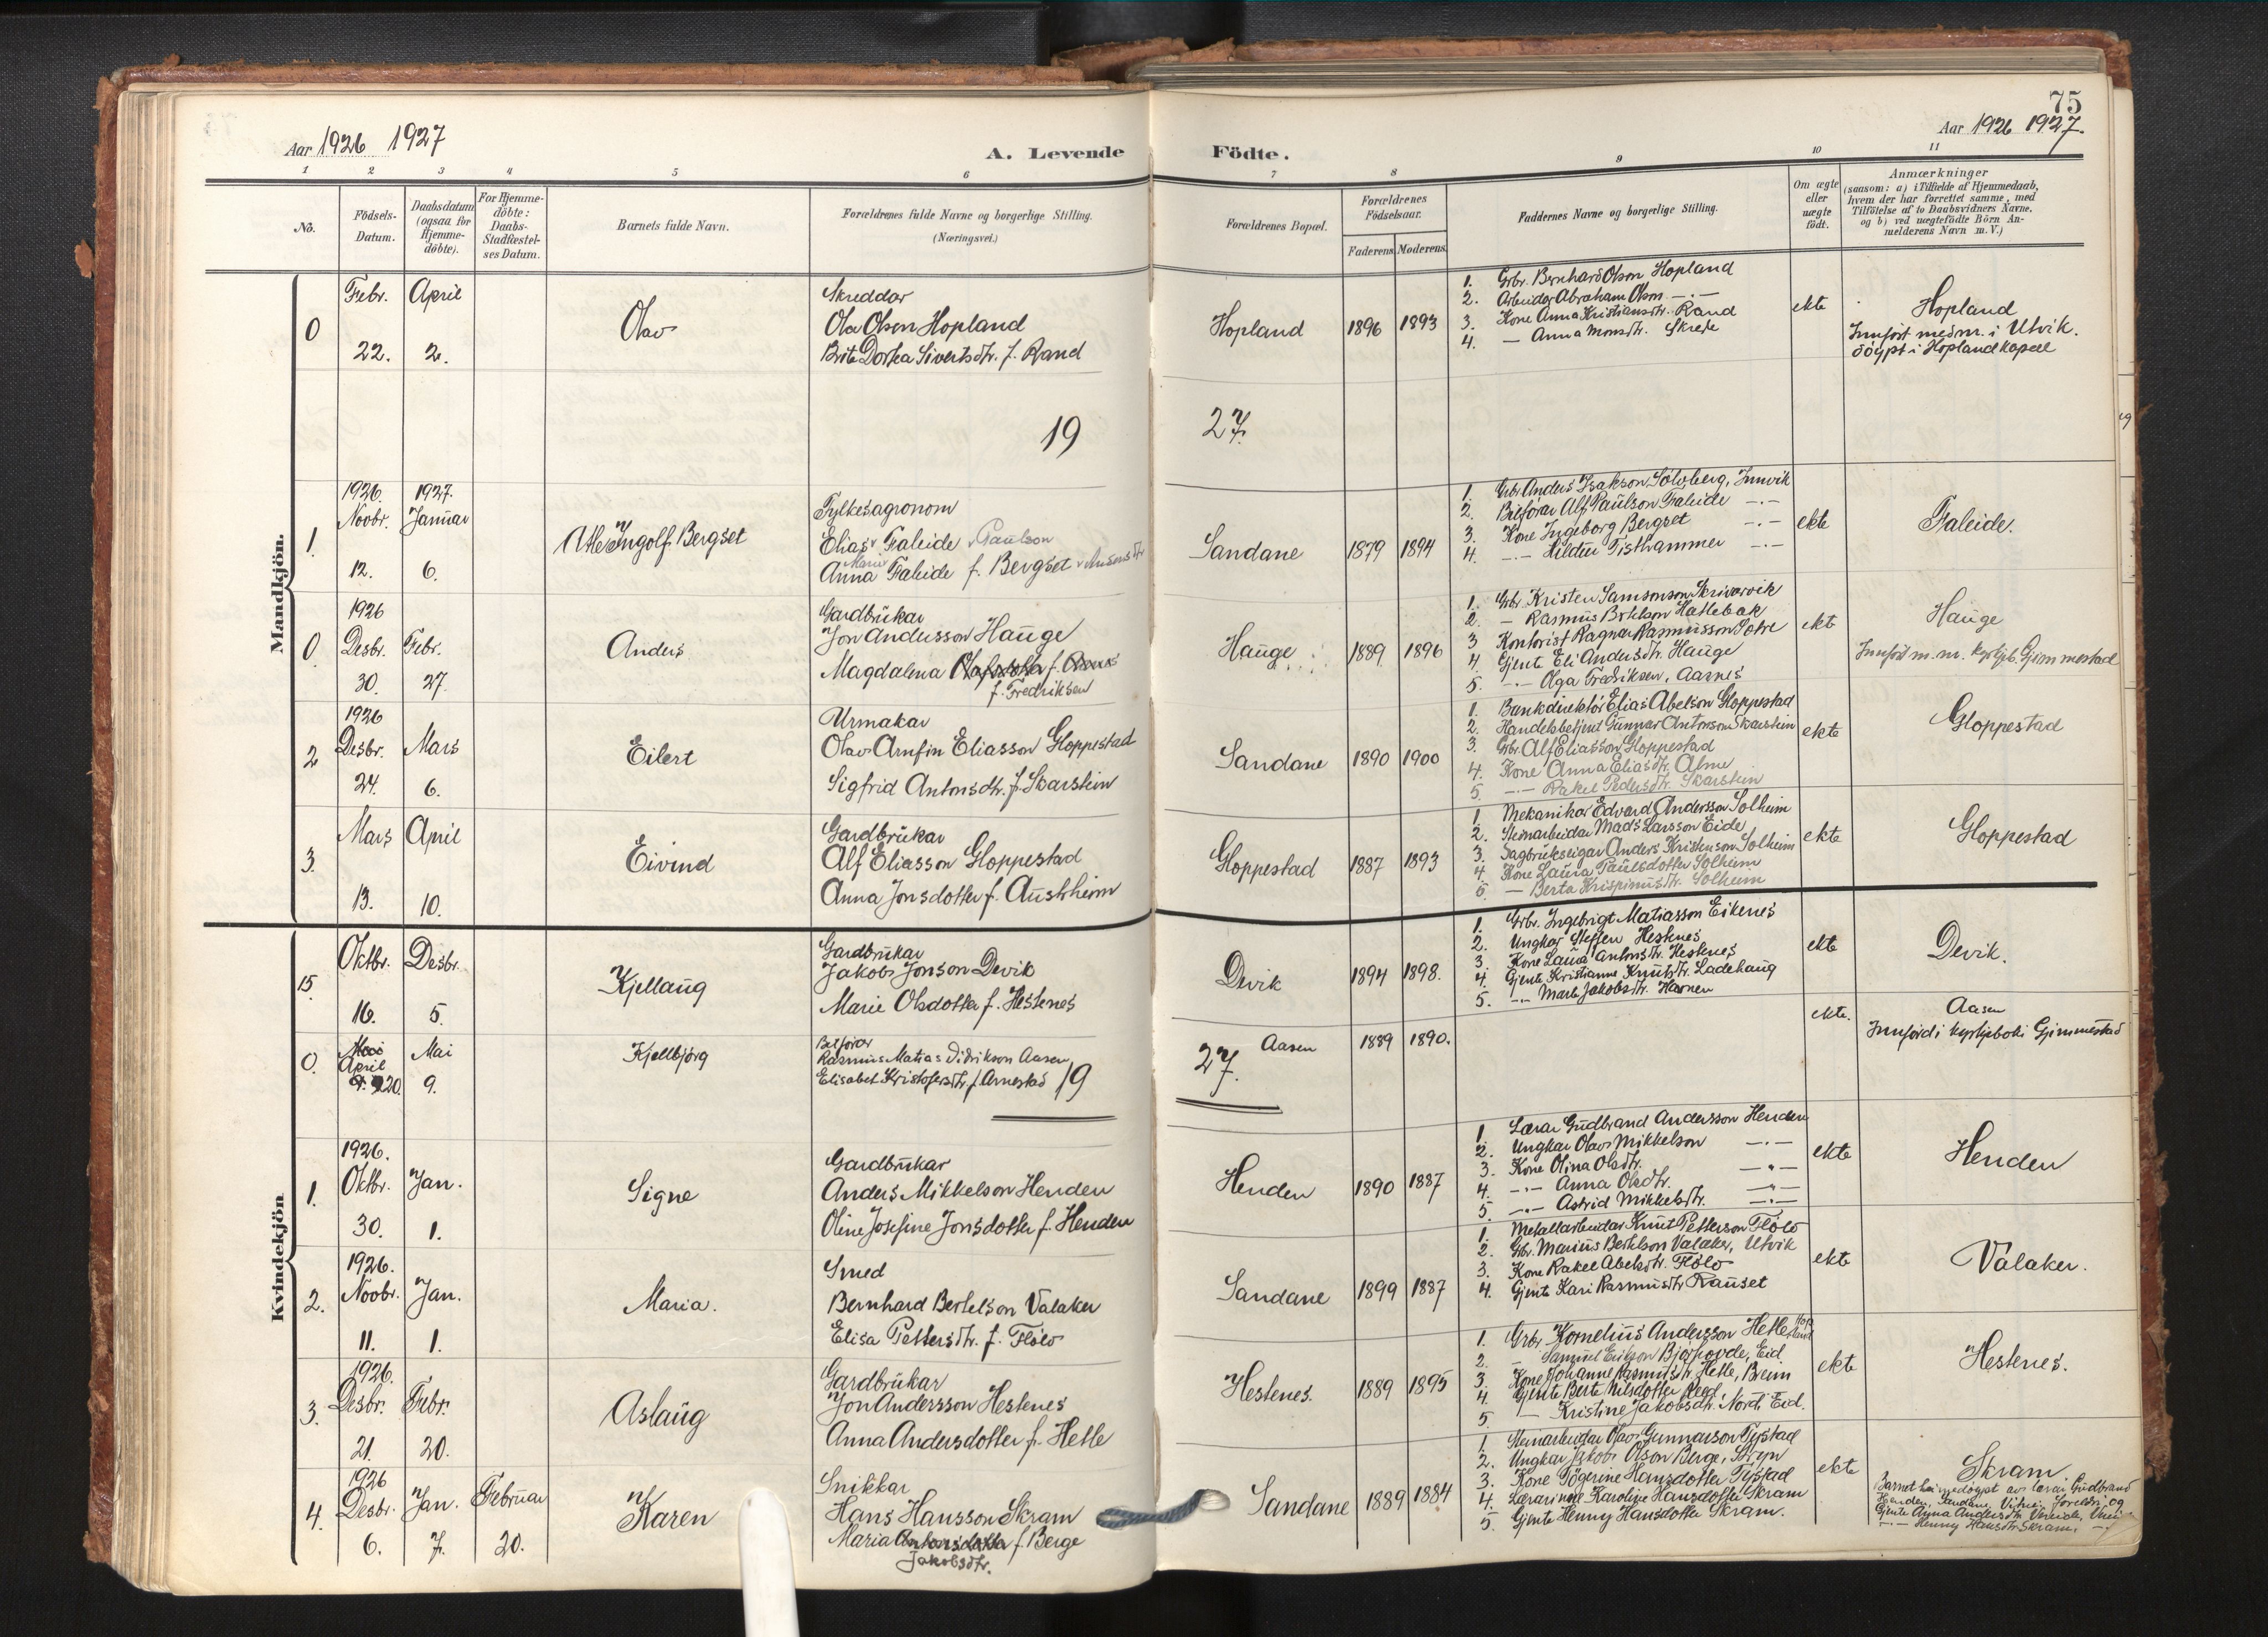 75
Aar 1926 1927
A. Levende
Födte.
Aar 1926 1927.
1 2 3 4 5 6 7 8 9 10 11
No.
Födsels-Datum.
Daabsdatum (ogsaa for Hjemme-döbte).
For Hjemme-döbte: Daabs-Stadfæstel-ses Datum.
Barnets fulde Navn.
Forældrenes fulde Navne og borgerlige Stilling.
(Næringsvei.)
Forældrenes Bopæl.
Forældrenes Födselsaar.
Faderens. Moderens.
Faddernes Navne og borgerlige Stilling.
Om ægte eller uægte födt.
Anmærkninger
(saasom: a) i Tilfælde af Hjemmedaab,
hvem der har forrettet samme, med
Tilföielse af to Daabsvidners Navne,
og b) ved uægtefödte Börn An-
melderens Navn m. V.)
Mandkjön.
0
Febr. 22.
April 2.
Olav
Skreddar
Ola Olson Hopland
Brite Dortea Sivertsdtr. f. Rand
Hopland
1896 1893
1. Grbr. Bernhard Olson Hopland
2. Arbeidar Abraham Olson —.—
3. Kone Anna Kristiansdtr. Rand
4. — Anna Monsdtr. Skrede
ekte
Hopland
Innfört med nr. i Utvik.
döypt i Hopland kapell
19
27.
1.
1926. Novbr. 12.
1927. Januar 6.
Atle Ingolf Bergset
Fylkesagronom
Elias Faleide Paulson
Marie
Anna Faleide f. Bergset
Sandane
1879 1894
1. Grbr. Anders Isakson Sölvberg, Innvik
2. Bilförar Alf Paulson Faleide —.—
3. Kone Ingeborg Bergset —.—
4. —.— Hildur Tisthammer —.—
ekte
Faleide.
0
1926 Desbr. 30.
Febr. 27.
Anders
Gardbrukar
Jon Andersson Hauge
Magdalena
f. Fredriksen
Hauge
1889 1896
1. Grbr. Kristen Samsonson Skrivarvik
2. — Rasmus Hatlebak
3 Kontorist Ragnar Rasmusson
4. Gjente Eli Andersdtr. Hauge
5. —.— Olga Fredriksen, Aarnes
ekte
Hauge
Innfört m. nr. kyrkjeb. Gjimmestad
2
1926 Desbr. 24.
Mars 6.
Eilert
Urmakar
Olav Arnfin Eliasson Gloppestad
Sigfrid Antonsdtr. f. Skarstein
Sandane
1890 1900
1. Bankdirektör Elias Abelson Gloppestad
2. Handelsbetjent Gunnar Antonson Skarstein
3. Grbr. Alf Eliasson Gloppestad
4. Kone Anna Eliasdtr. Alme
5. —.— Rakel Pedersdtr. Skarstein
ekte
Gloppestad
3.
Mars 13.
April 10.
Eivind
Gardbrukar
Alf Eliasson Gloppestad
Anna Jonsdotter f. Austrheim
Gloppestad
1887 1893
1. Mekanikar Edvard Andersson Solheim
2. Steinarbeidar Mads Larsson Eide
3. Sagbrukseigar Anders Kristenson Solheim
4. Kone Laura Paulsdotter Solheim
5 — Berta Krispinusdtr. Solheim
ekte
Gloppestad
Kvindekjön
15.
Oktbr. 16.
Desbr. 5.
Kjellaug
Gardbrukar
Jakob Jonson Devik
Marie Olsdotter f. Hestenes
Devik
1894 1898.
1. Grbr. Ingebrigt Matiasson Eikenes
2. Ungkar Steffen Hestenes
3. Kone Laura Antonsdtr. Hestenes
4. Gjente Kristianne Knutsdtr. Ladehaug
5. —.— Marta Jakobsdtr. Hamen
ekte
Devik.
0.
April 20.
Mai 9.
Kjellbjörg
Bilförar
Rasmus Matias Didrikson Aasen
Elisabet Kristofersdtr. f. Arnestad
19
27.
Aasen
1889 1890.
ekte.
Aasen
Innförd i kyrkjeboki Gjimmestad
1.
1926. Oktbr. 30.
Jan. 1.
Signe
Gardbrukar
Anders Mikkelson Henden
Oline Josefine Jonsdotter f. Henden
Henden
1890 1887
1. Lærar Gudbrand Andersson Henden
2. Ungkar Olav Mikkelson —.—
3. Kone Olina Olsdtr. —.—
4. —.— Anna Olsdtr. —.—
5. —.— Astrid Mikkelsdtr. —.—
ekte
Henden
2.
1926. Novbr. 11.
Jan. 1.
Maria.
Smed
Bernhard Bertelson Valaker
Elisa Pettersdtr. f. Flölo
Sandane
1899 1887
1. Metallarbeidar Knut Petterson Flölo
2. Grbr. Marius Bertelson Valaker, Utvik
3. Kone Rakel Abelsdtr. Flölo
4. Gjente Kari Rasmusdtr Rauset
ekte
Valaker.
3.
1926. Desbr. 21.
Febr. 20.
Aslaug
Gardbrukar
Jon Andersson Hestenes
Anna Andersdotter f. Hetle
Hestenes.
1889 1895
1. Grbr. Kornelius Andersson Hetle, Hopland
2. — Samuel Erikson Björhovde, Eid
3. Kone Johanne Rasmusdtr. Hetle, Breim
4. Gjente Berte Nilsdotter
5 — Kristine Jakobsdtr. Nord, Eid.
ekte
Hestenes.
4.
1926 Desbr. 6.
Jan. 7.
Februar 20.
Karen
Snikkar
Hans Hansson Skram
Maria Antonsdotter f. Berge
Jakobsdtr.
Sandane
1889 1884
1. Steinarbeidar Olav Gunnarson Tystad
2. Ungkar Jakob Olson Berge, Stryn
3. Kone Jögerine Hansdotter Tystad
4. Lærarinne Karoline Hansdotter Skram
5. Gjente Henny Hansdotter Skram.
ekte
Skram.
Barnet heimedöypt av lærar Gudbrand
Henden, Sandane, Vitne: foreldri og
Gjente Anna Andersdtr. Vereide,
—.— Henny Hansdtr. Skram. —.—